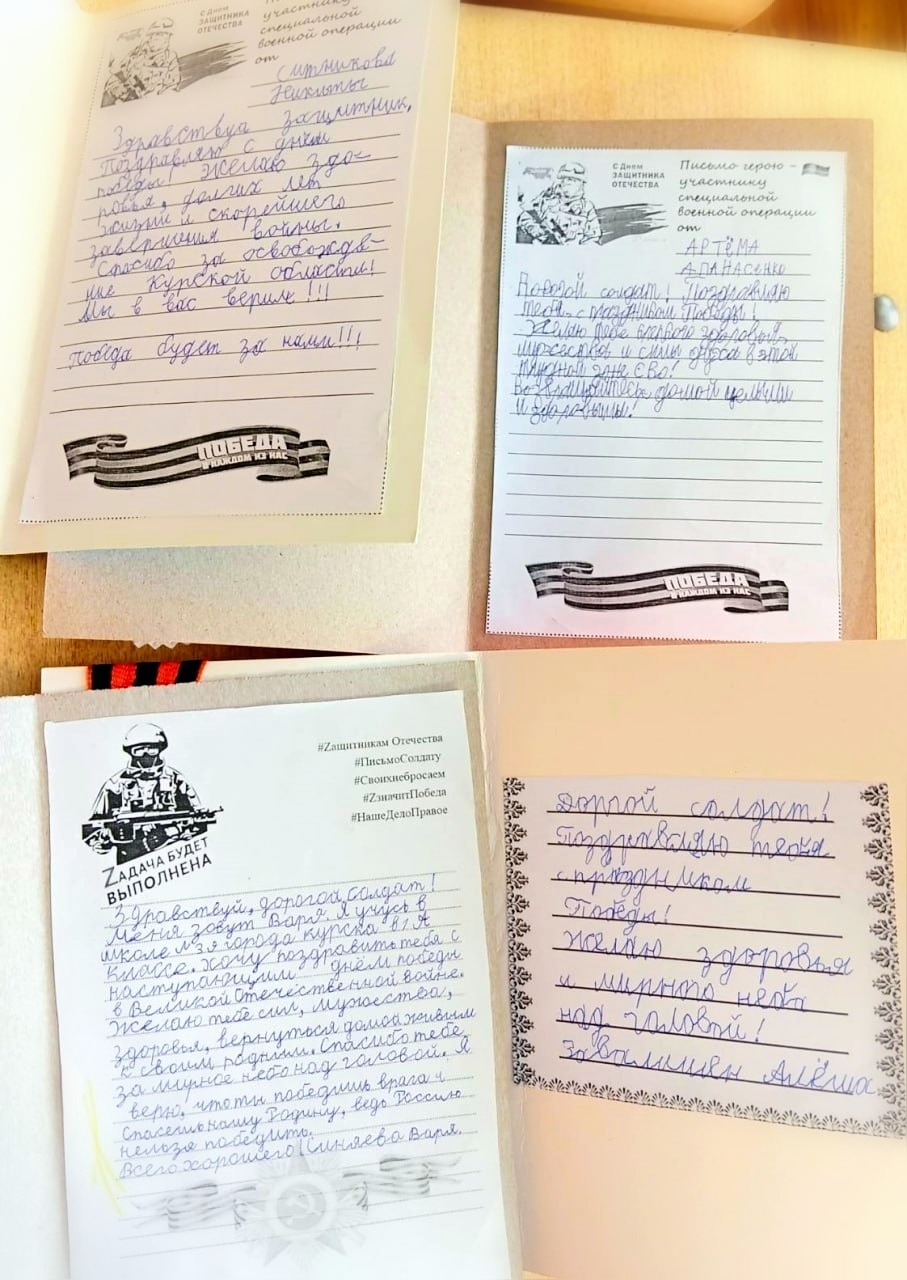 С Днем
ЗАЩИТНИКА
ОТЕЧЕСТВА
участнику
специальной
военной операции
от
Ситникова
Никиты
Здравствуа защитник,
Поздравляю с днём
победы! Желаю здо-
ровья, долгих лет
жизни и скорейшего
завершения войны.
Спасибо за освобожде-
ние Курской области!
Мы в вас верим!!!
Победа будет за нами!!!
ПОБЕДА
В КАЖДОМ ИЗ НАС
С Днем
ЗАЩИТНИКА
ОТЕЧЕСТВА
Письмо герою -
участнику
специальной
военной операции
от
АРТЁМА
АПАНАСЕНКО
Дорогой солдат! Поздравляю
тебя с праздником Победы!
Желаю тебе крепкого здоровья,
мужества и силы духа в этой
трудной зоне СВО!
Возвращайтесь домой целыми
и здоровыми.
ПОБЕДА
В КАЖДОМ ИЗ НАС
#Zащитникам Отечества
#ПисьмоСолдату
#Своихнебросаем
#ZзначитПобеда
#НашеДелоПравое
ZАДАЧА БУДЕТ
ВЫПОЛНЕНА
Здравствуй, дорогой солдат!
Меня зовут Варя. Я учусь в
школе города курска в 1 А
классе. Хочу поздравить тебя с
наступающим днём победы
в Великой Отечественной войне.
Желаю тебе сил, мужества,
здоровья, вернуться домой живым
к своим родным. Спасибо тебе
за мирное небо над головой. Я
верю, что ты победишь врага и
спасешь нашу Родину, ведь Россию
нельзя победить.
Всего хорошего Синяева Варя.
Дорогой солдат!
Поздравляю тебя
с праздником
Победы!
Желаю здоровья
и мирного неба
над головой!
Алёша